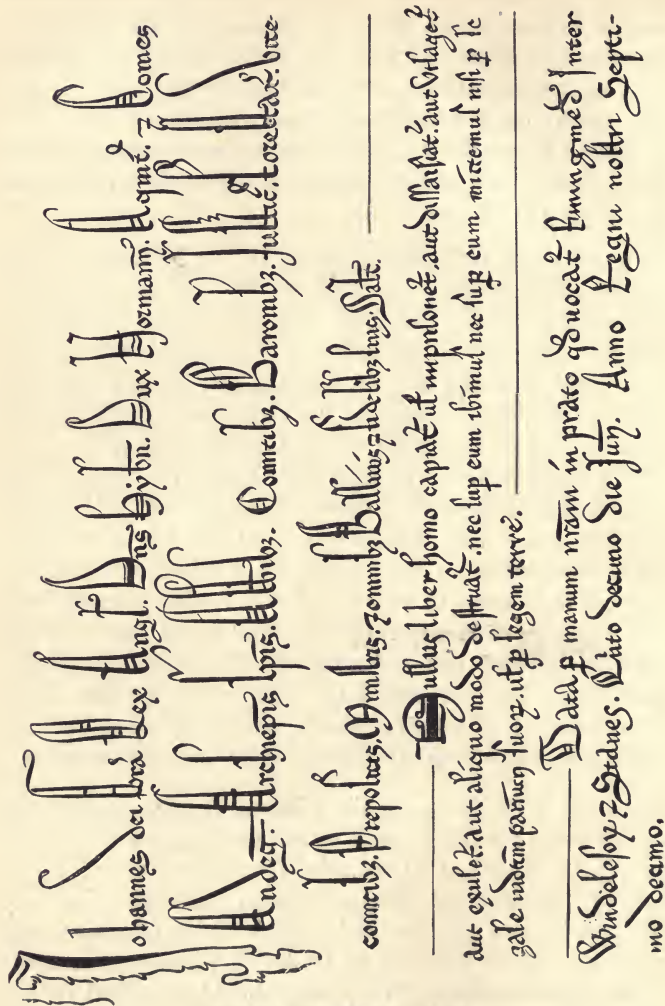 Johannes dei gra Rex Angl. Dns Hybn. Dux Normann. Aqnit. ⁊ Comes
Andeg. Archiepis Epis. Abbibz. Comitibz. Baronibz. Justic. Forestar. Vice-
comitibz. Prepositis. Ministris. ⁊ omnibz Ballivis ⁊ fidelibz suis. Salt.
Nullus liber homo capiat ul imprisonet. aut dissaisiat. aut utlaget
aut exulet. aut aliquo modo destruat. nec sup eum ibimus nec sup eum mittemus nisi p le
gale iudicium parium suoꝝ. ut p legem terre.
Data p manum nram in prato qd uocat Runingmed Inter
Windelesoꝝ ⁊ Stanes. Quinto decimo die Jun. Anno Regni nostri Septi-
mo decimo.